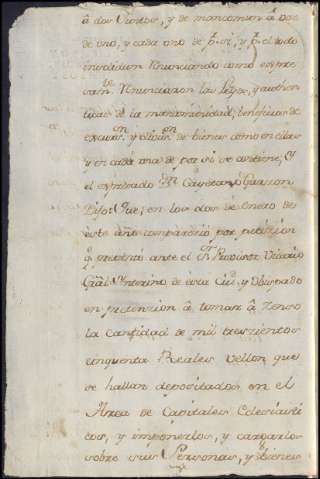 â dos Juntos, y de mancomun â voz
de uno, y cada uno de p.r si, y p.r el todo
insolidum Renunciando como expre
sam.te Renunciaron las Leyes, y authen
ticas de la mancomunidad, beneficios de
excur.on y divis.on de bienes como en ellas
y en cada una de por si se contiene; Y
el expresado D.n Cayetano Garzon
Dijo: Que, en los dos de Enero de
este año comparecio por peticion
q presentò ante el S.r Provisor Vicario
Gral Ynterino de esta Ciu.d y Obispado
en pretension â tomar â Zenso
la cantidad de mil treszientos
cinquenta Reales Vellon que
se hallan depositados en el
Arca de Capitales Eclesiasti
cos, y imponerlos, y cargarlos
sobre sus Personas, y Bienes